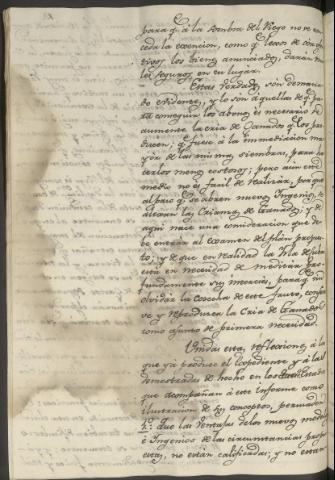 para q.e á la sombra del Riego no se con
ceda la execucion, como q.e lexos de con
tivos los bienes anunciados, daran ma
los seguros en su lugar.
Estas Verdades son demasia
do evidentes, y lo son aquellas de q.e pa
ra conseguir los abonos es necesario se
aumente la cria de Ganados q.e los pro
ducen; q.e fuese á la immediacion ma
yor de las mismas siembras, para ha
cerlos menos costosos; pero aun este
medio no es facil de realizar, porque
al paso q.e se abren nuevos Ingenios, se
alexan las Crianzas de Ganados; y de
aquí nace una consideracion que de
be entrar al examen del plan propues
to; y de que en realidad la Isla
está en necesidad de meditar pro
fundamente sus intereses, para q.e sin
olvidar la cosecha de este fruto, conser
ve y reproduzca la Cria de Ganados
como asunto de primera necesidad.
Unidas estas reflecciones á las
que yá produce el Expediente y á las
demostradas de hecho en los
que acompañan á este informe como
ilustracion de sus conceptos, persuaden
que las Ventajas de los nuevos
é Ingenios de las circunstancias prop
estas, no están calificadas; y no estan